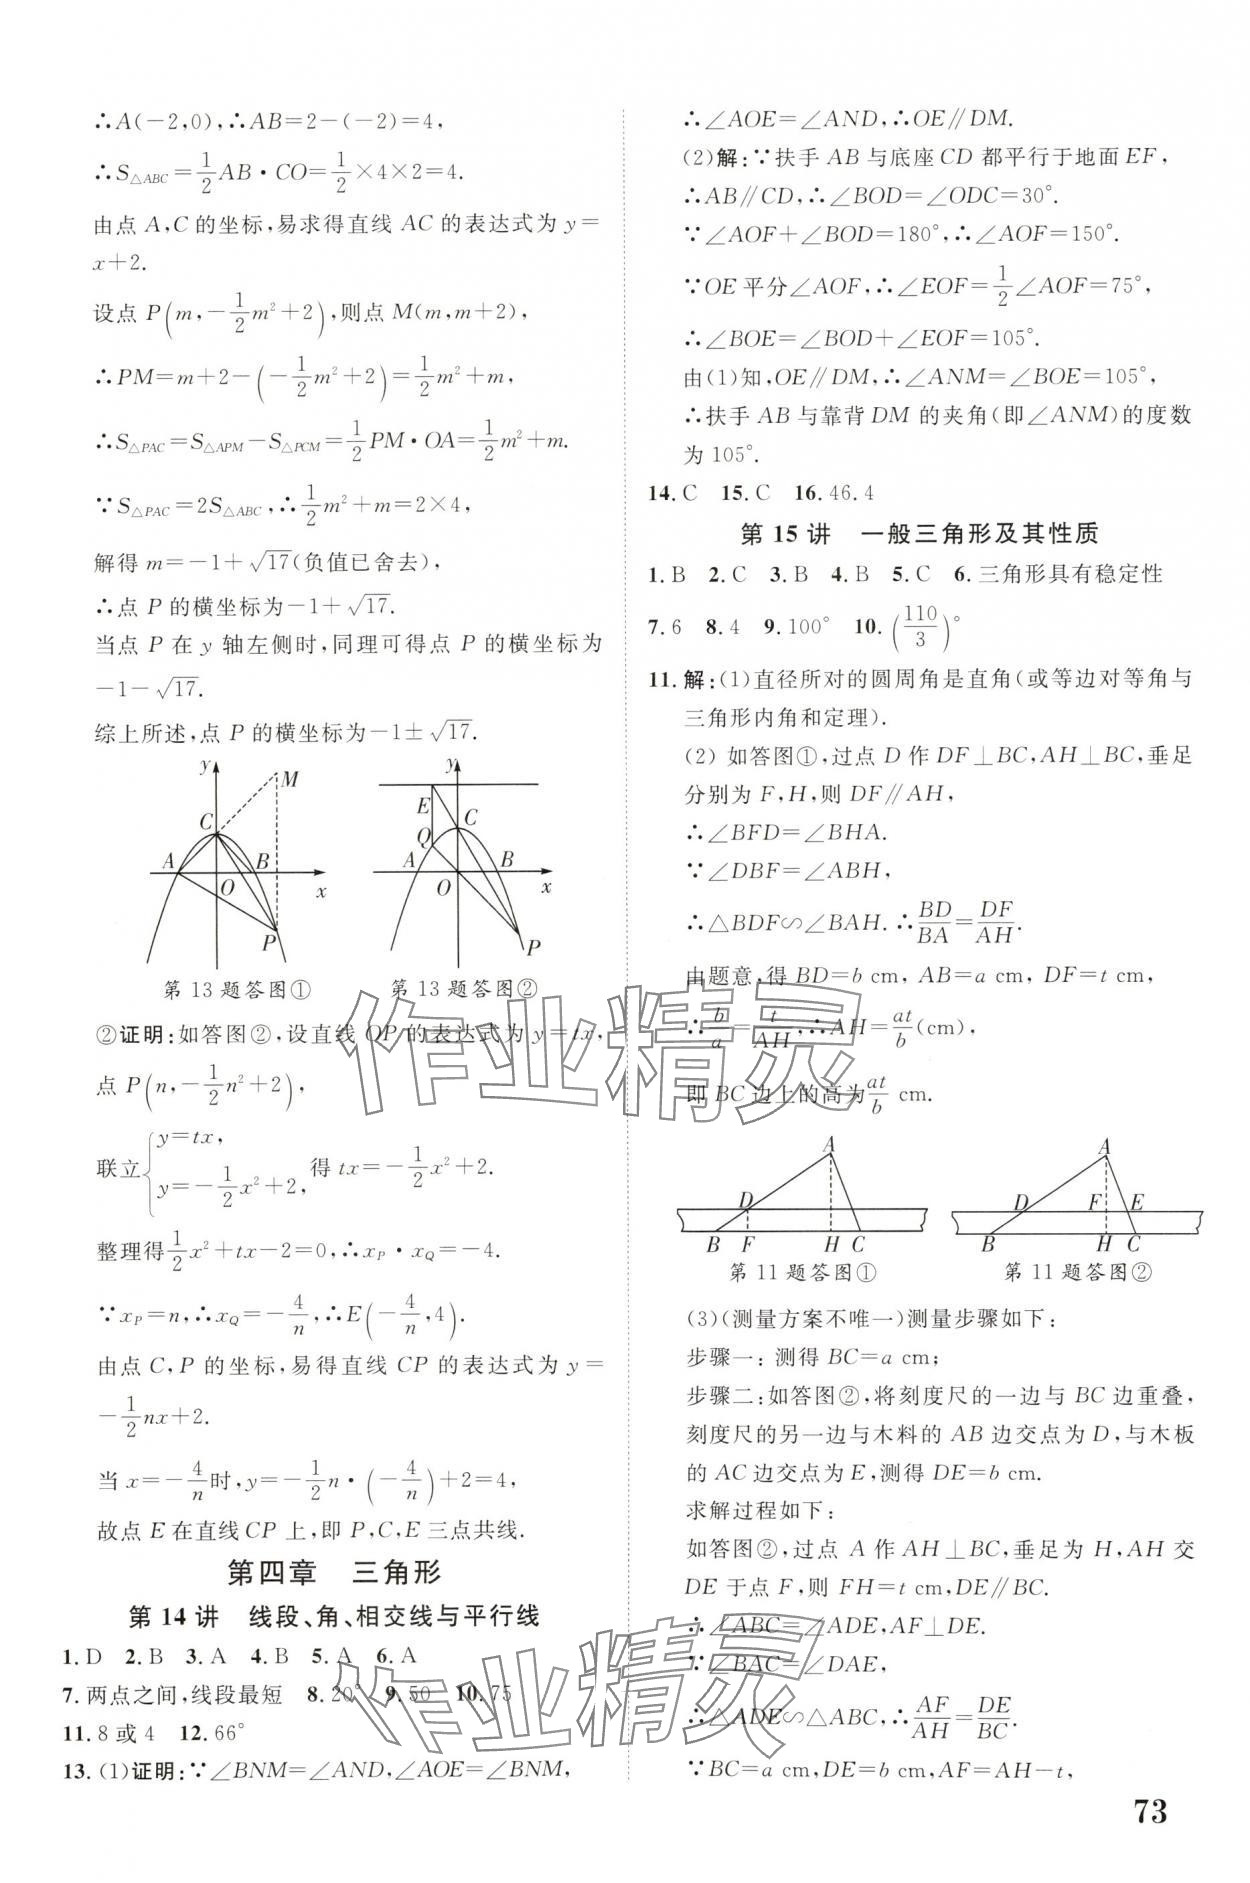 ∴A(－2,0),∴AB＝2－(－2)＝4,
∴S△ABC＝1/2AB·CO＝1/2×4×2＝4.
由点 A,C 的坐标,易求得直线 AC 的表达式为 y＝
x＋2.
设点 P(m,－1/2m²＋2),则点 M(m,m＋2),
∴PM＝m＋2－(－1/2m²＋2)＝1/2m²＋m,
∴S△PAC＝S△APM－S△PCM＝1/2PM·OA＝1/2m²＋m.
∵S△PAC＝2S△ABC,∴1/2m²＋m＝2×4,
解得 m＝－1＋√17(负值已舍去),
∴点 P 的横坐标为－1＋√17.
当点 P 在 y 轴左侧时,同理可得点 P 的横坐标为
－1－√17.
综上所述,点 P 的横坐标为－1±√17.
y M C A B O x P
y E C Q A B O x P
第 13 题答图① 第 13 题答图②
②证明:如答图②,设直线 OP 的表达式为 y＝tx,
点 P(n,－1/2n²＋2),
联立{y＝tx, y＝－1/2x²＋2, 得 tx＝－1/2x²＋2.
整理得1/2x²＋tx－2＝0,∴xP·xQ＝－4.
∵xP＝n,∴xQ＝－4/n,∴E(－4/n,4).
由点 C,P 的坐标,易得直线 CP 的表达式为 y＝
－1/2nx＋2.
当 x＝－4/n时,y＝－1/2n·(－4/n)＋2＝4,
故点 E 在直线 CP 上,即 P,C,E 三点共线.
第四章 三角形
第 14 讲 线段、角、相交线与平行线
1. D 2. B 3. A 4. B 5. A 6. A
7. 两点之间,线段最短 8. 20° 9. 50 10. 75
11. 8 或 4 12. 66°
13. (1)证明:∵∠BNM＝∠AND,∠AOE＝∠BNM,
∴∠AOE＝∠AND,∴OE∥DM.
(2)解:∵扶手 AB 与底座 CD 都平行于地面 EF,
∴AB∥CD,∴∠BOD＝∠ODC＝30°.
∵∠AOF＋∠BOD＝180°,∴∠AOF＝150°.
∵OE 平分∠AOF,∴∠EOF＝1/2∠AOF＝75°,
∴∠BOE＝∠BOD＋∠EOF＝105°.
由(1)知,OE∥DM,∴∠ANM＝∠BOE＝105°,
∴扶手 AB 与靠背 DM 的夹角(即∠ANM)的度数
为 105°.
14. C 15. C 16. 46.4
第 15 讲 一般三角形及其性质
1. B 2. C 3. B 4. B 5. C 6. 三角形具有稳定性
7. 6 8. 4 9. 100° 10. (110/3)°
11. 解:(1)直径所对的圆周角是直角(或等边对等角与
三角形内角和定理).
(2) 如答图①,过点 D 作 DF⊥BC,AH⊥BC,垂足
分别为 F,H,则 DF∥AH,
∴∠BFD＝∠BHA.
∵∠DBF＝∠ABH,
∴△BDF∽∠BAH.∴BD/BA＝DF/AH.
由题意,得 BD＝b cm, AB＝a cm, DF＝t cm,
∴b/a＝t/AH,∴AH＝at/b(cm),
即 BC 边上的高为at/b cm.
A D B F H C
A D F E B H C
第 11 题答图① 第 11 题答图②
(3)(测量方案不唯一)测量步骤如下:
步骤一: 测得 BC＝a cm;
步骤二:如答图②,将刻度尺的一边与 BC 边重叠,
刻度尺的另一边与木料的 AB 边交点为 D,与木板
的 AC 边交点为 E,测得 DE＝b cm.
求解过程如下:
如答图②,过点 A 作 AH⊥BC,垂足为 H,AH 交
DE 于点 F,则 FH＝t cm,DE∥BC.
∴∠ABC＝∠ADE,AF⊥DE.
∵∠BAC＝∠DAE,
∴△ADE∽△ABC,∴AF/AH＝DE/BC.
∵BC＝a cm,DE＝b cm,AF＝AH－t,
73
作业精灵
作业精灵